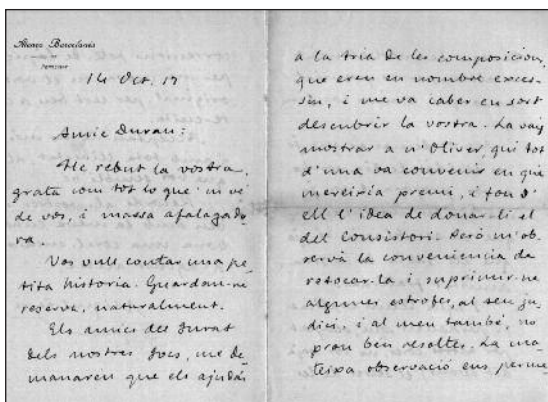 Ateneu Barcelonès
14 Oct. 17
Amic Duran:
He rebut la vostra,
grata com tot lo que 'm ve
de vos, i massa afalagado-
ra.
Vos vull contar una pe-
tita historia. Guardau-ne
reserva, naturalment.
Els amics del Jurat
dels nostres Jocs, me de-
manaren que els ajudás
a la tria de les composicions,
que eren en nombre exces-
siu, i me va caber en sort
descubrir la vostra. La vaig
mostrar a n'Oliver qui tot
d'una va convenir en que
mereixia premi, i fou d'
ell l'idea de donar-li el
del Consistori. Però m'ob-
servà la conveniencia de
retocar-la i suprimir-ne
algunes estrofes, al seu ju-
dici, i al meu també, no
prou ben resoltes. La ma-
teixa observació ens perme